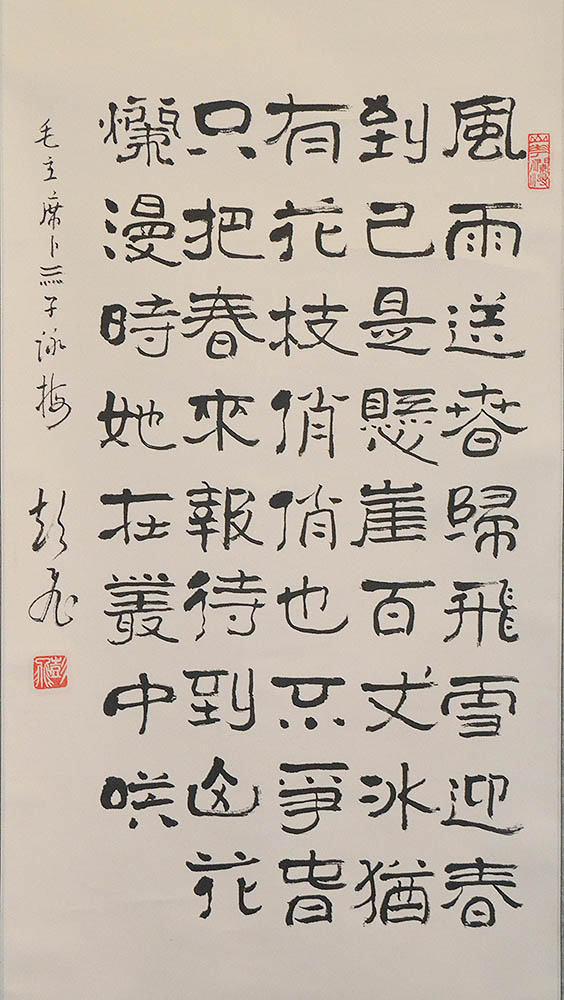 風雨送春歸飛雪迎春
到已是懸崖百丈冰猶
有花枝俏俏也不爭春
只把春來報待到山花
爛漫時她在叢中咲
毛主席卜祘子詠梅
彭飛